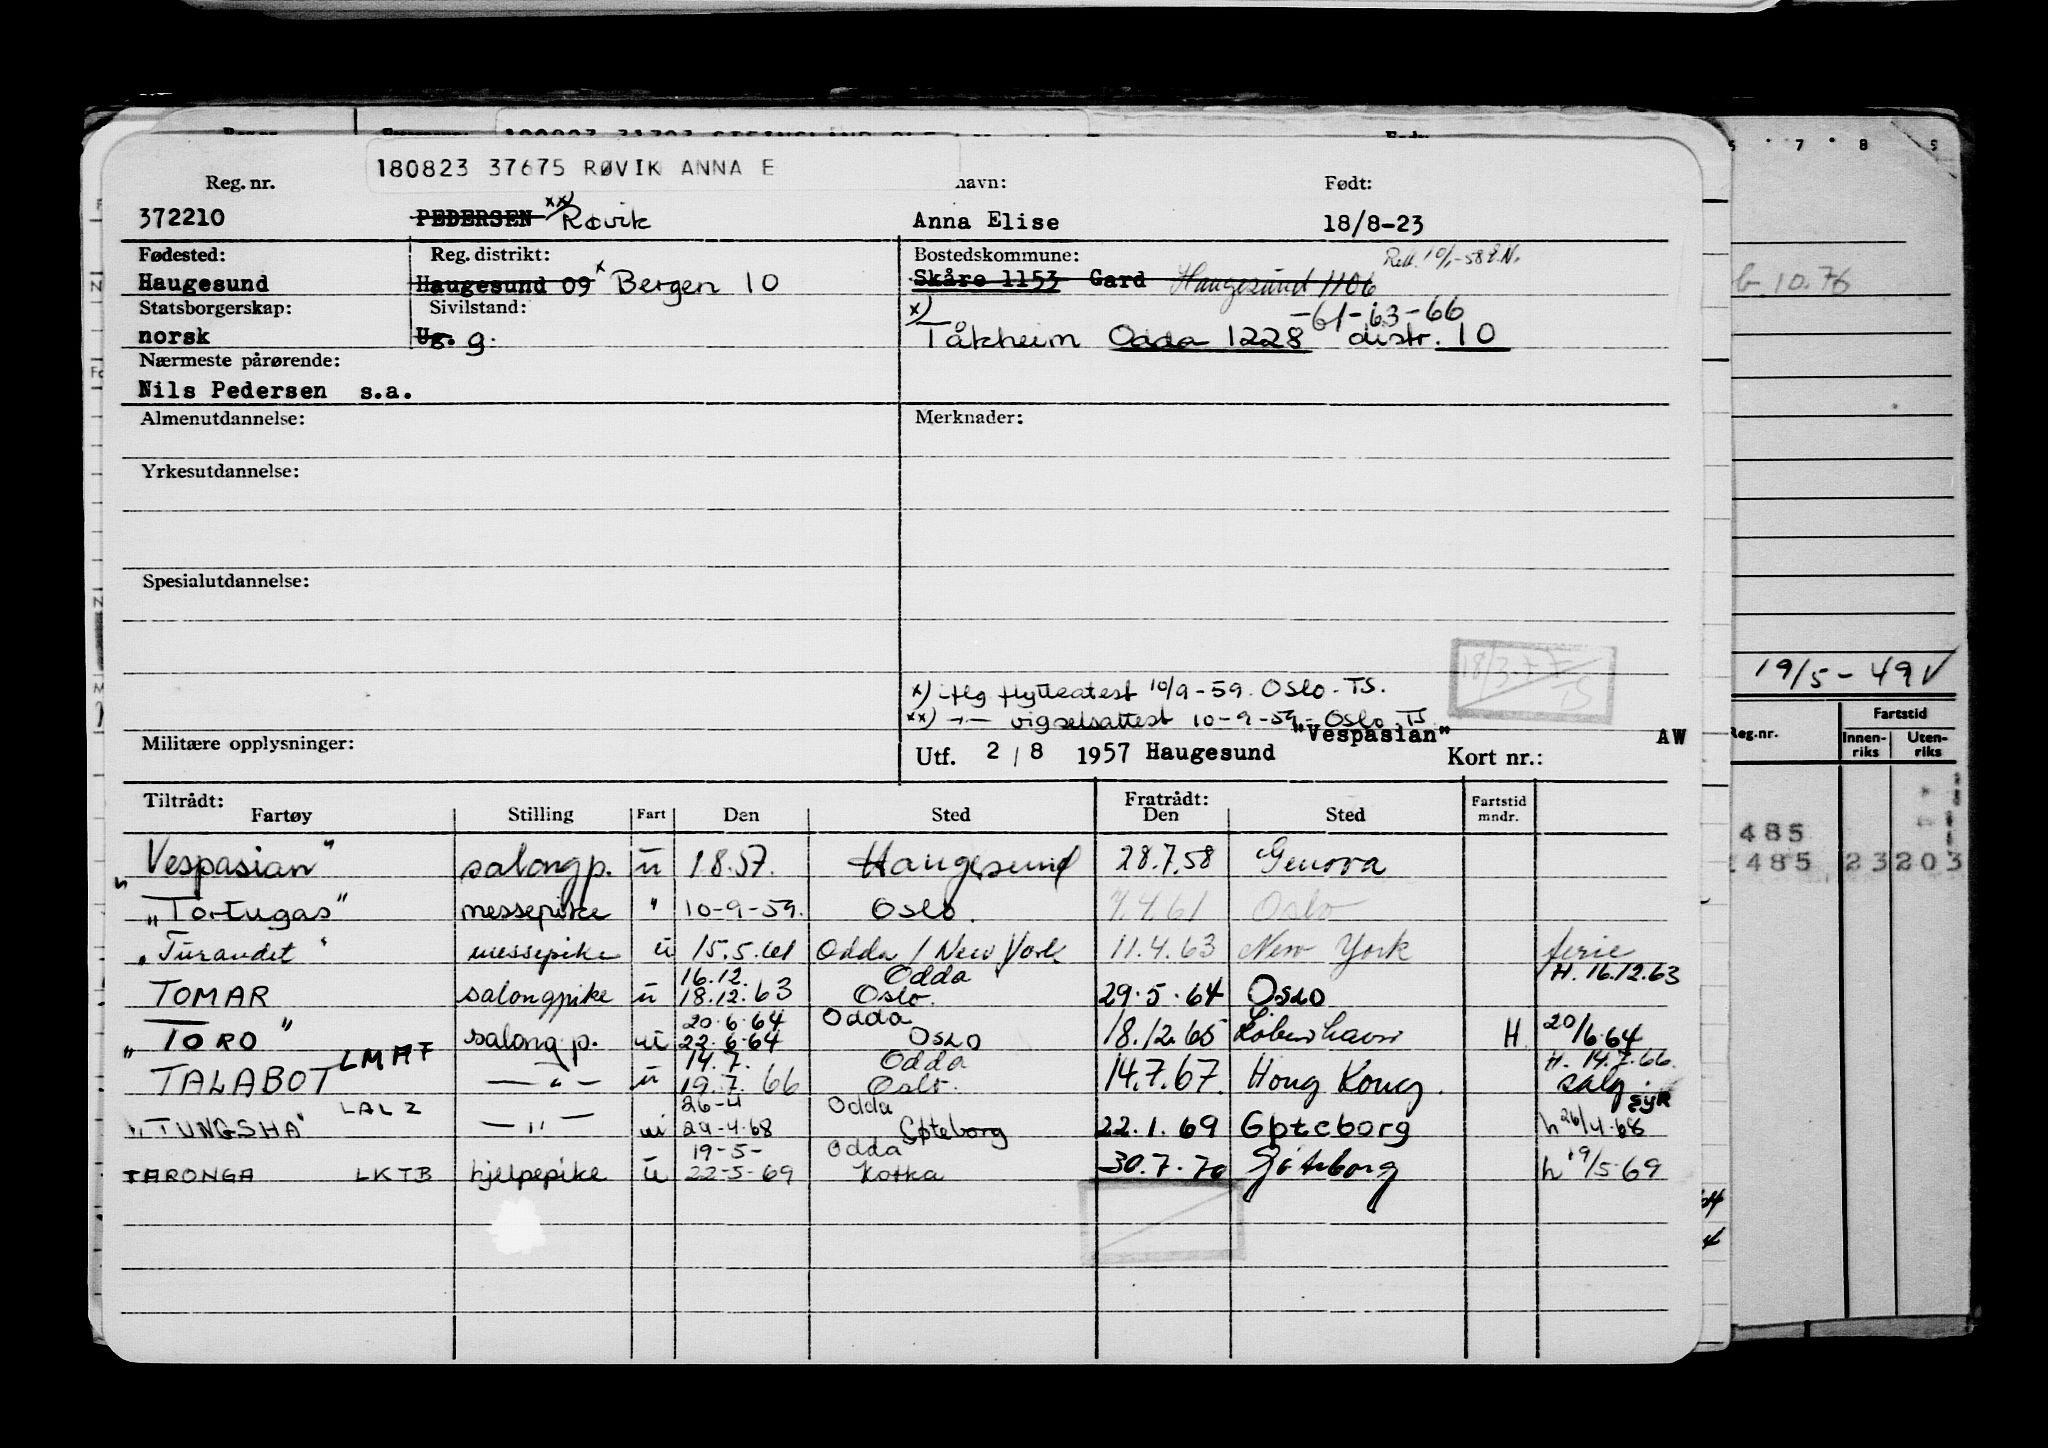 180823 37675 RØVIK ANNA E
Reg. nr. navn: Født:
372210 PEDERSEN xx) Røvik Anna Elise 18/8-23
Fødested: Reg. distrikt: Bostedskommune: Rett. 10/1-58
Haugesund Haugesund 09 x Bergen 10 Skåre 1153 Gard Haugesund 1106
Statsborgerskap: Sivilstand: x) -61-63-66
norsk Ug. g. Tåkheim Odda 1228 distr. 10
Nærmeste pårørende:
Nils Pedersen s.a.
Almenutdannelse: Merknader:
Yrkesutdannelse:
Spesialutdannelse:
18/3-77 TS
x) iflg flytteattest 10/9-59. Oslo. TS.
xx) -"- vigselsattest 10-9-59- Oslo TS
Militære opplysninger: Utf. 2/8 1957 Haugesund "Vespasian" Kort nr.: AW
Tiltrådt: Fratrådt:
Fartøy Stilling Fart Den Sted Den Sted Fartstid mndr.
"Vespasian" salongp. u 1.8.57. Haugesund 28.7.58 Genova
"Tortugas" messepike " 10-9-59. Oslo. 7.4.61 Oslo
"Turandot" messepike u 15.5.61 Odda / New York 11.4.63 New York ferie
16.12. Odda H. 16.12.63
TOMAR salongpike u 18.12.63 Oslo. 29.5.64 Oslo
20.6.64 Odda
"TORO" salongp. u 22.6.64 Oslo 18.12.65 København H 20/6.64
LMHF 14.7. Odda H. 14.7.66.
TALABOT -"- u 19.7.66 Oslo. 14.7.67. Hong Kong. salg
LALZ 26-4 Odda syk
"TUNGSHA" -"- u 29-4-68 Gøteborg 22.1.69 Gøteborg h 26/4-68
19-5- Odda
TARONGA LKTB hjelpepike u 22-5-69 Kotka 30.7.70 Göteborg h 19/5-69
7 8
10.76
19/5-49
Reg.nr. Fartstid
Innenriks Utenriks
485
485 23 203